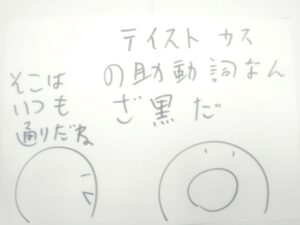 テイスト カス
の助動詞なん
ざ黒だ
そこは
いつも
通りだね